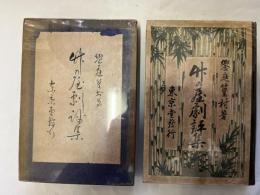 饗庭篁村著
竹の屋劇評集
東京堂発行
饗庭篁村著
竹の屋劇評集
東京堂發行